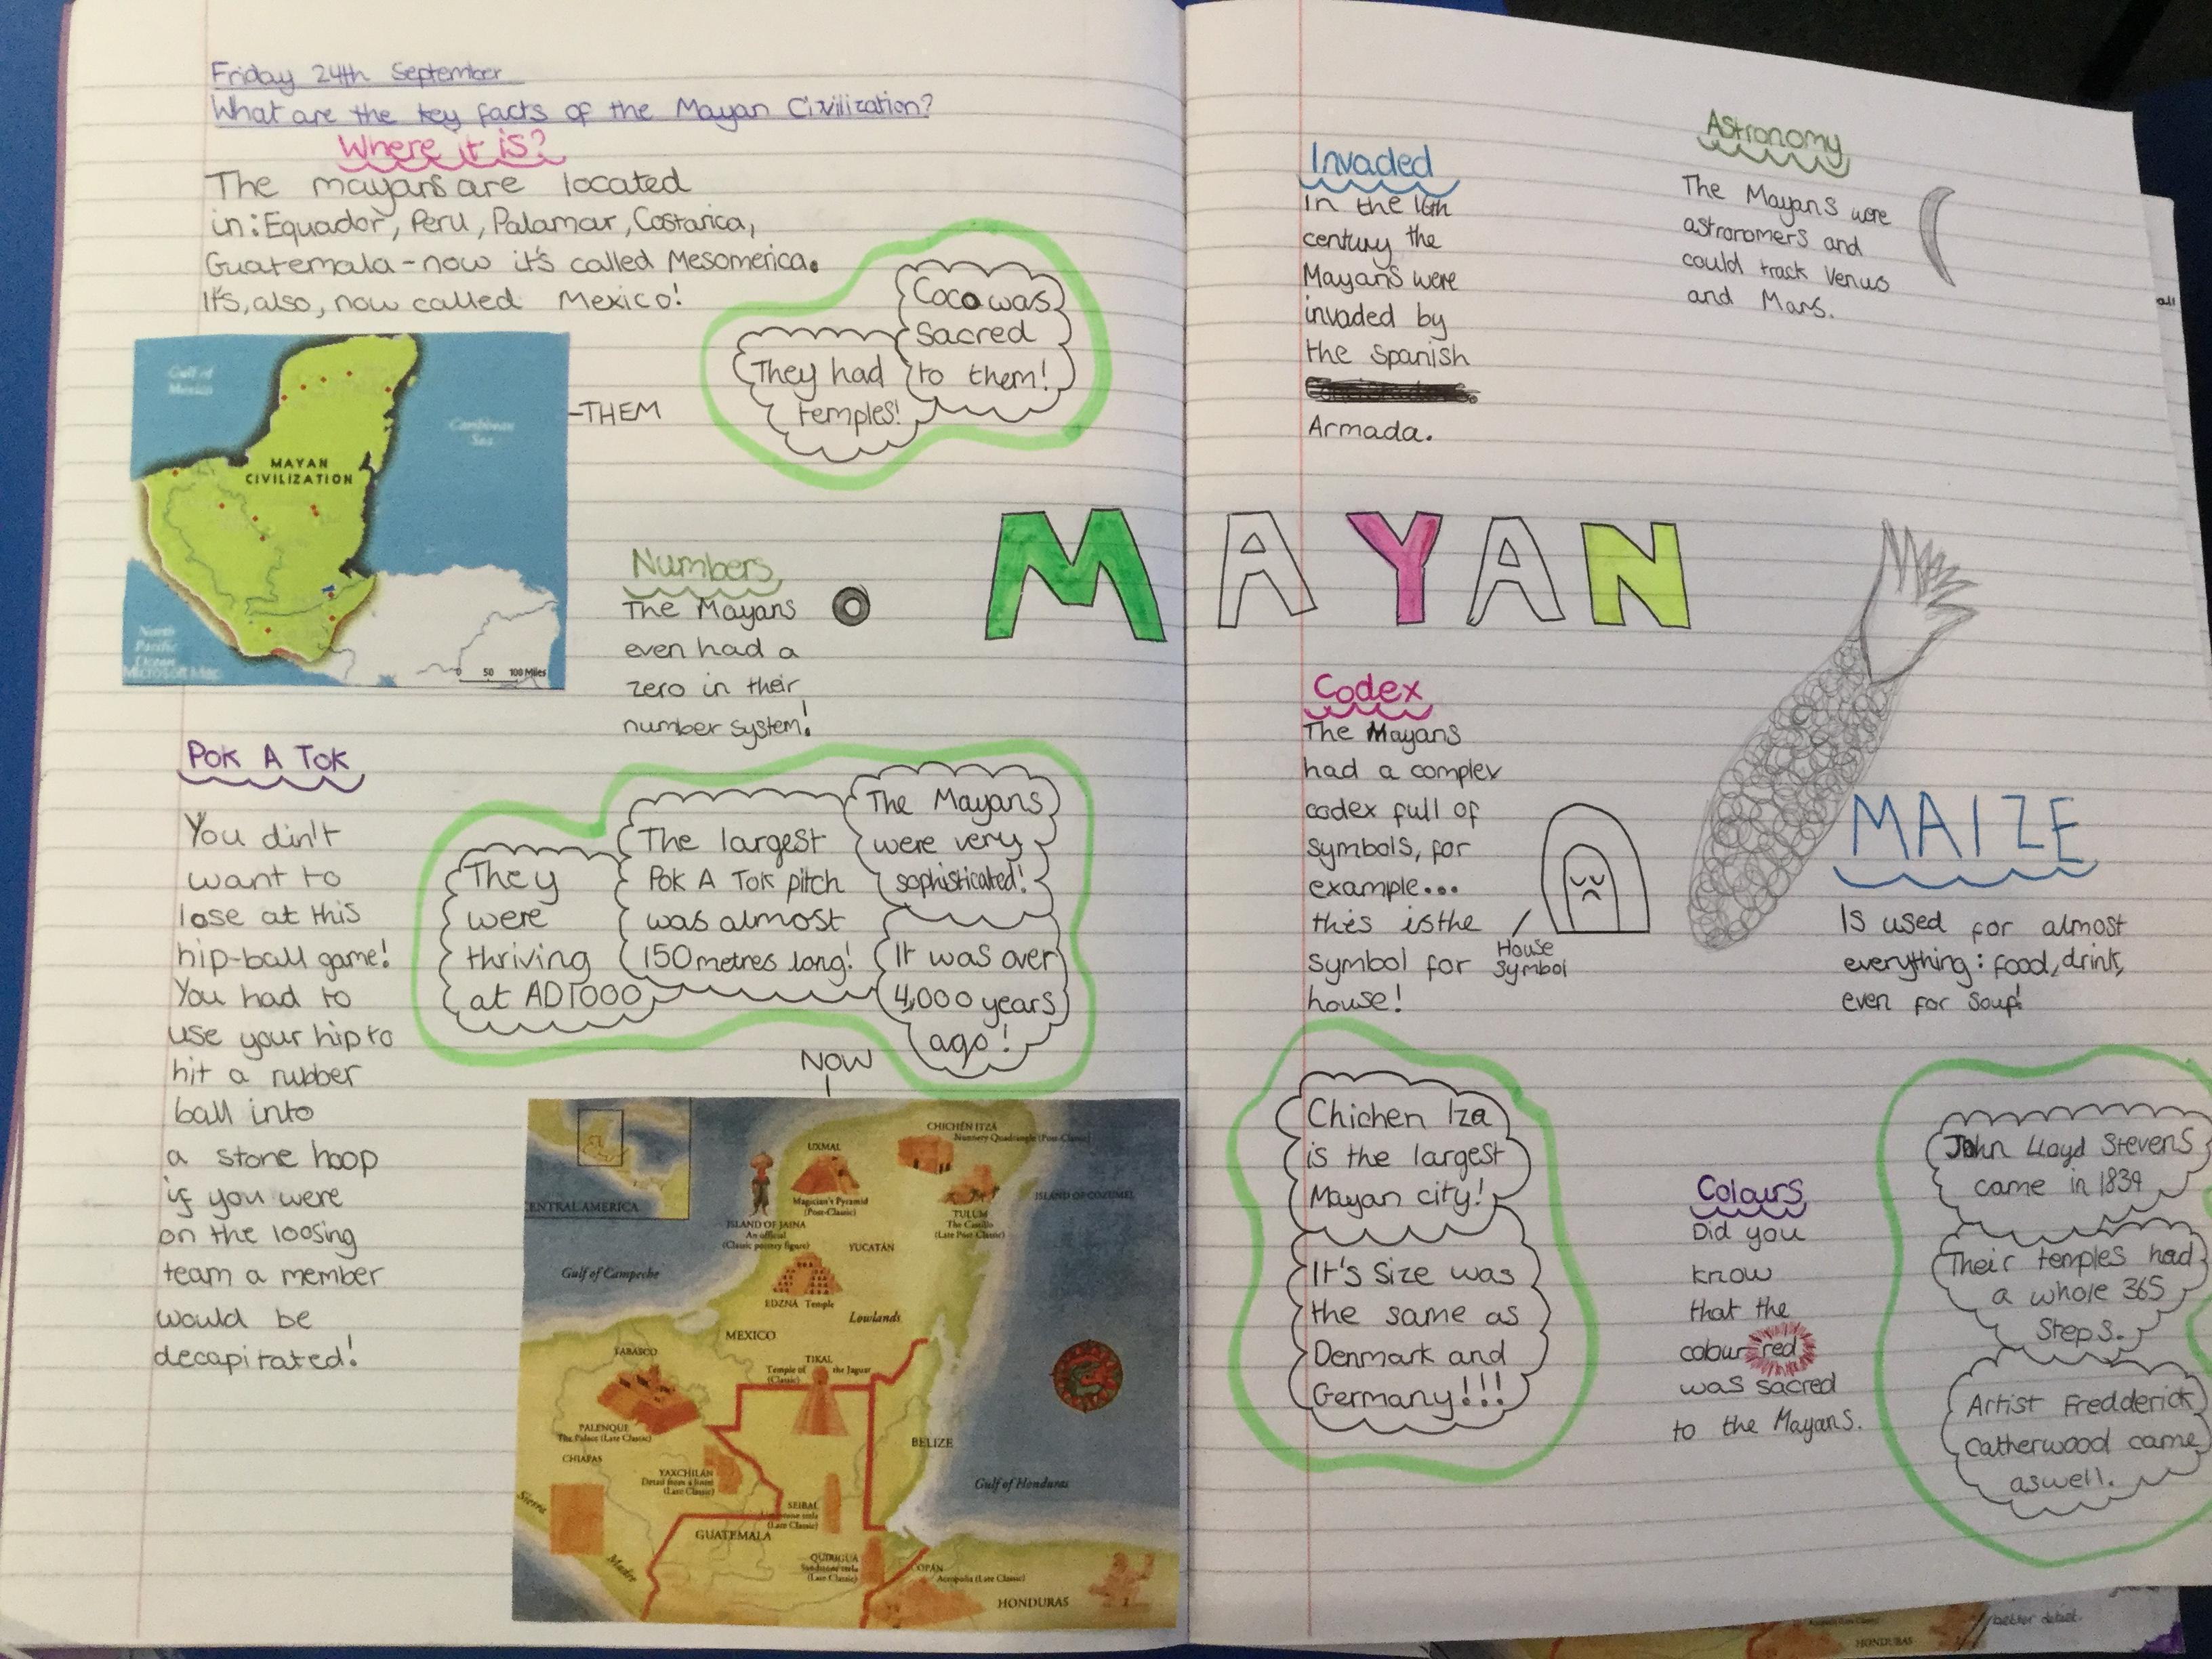 Friday 24th September
What are the key facts of the Mayan Civilization?
Where it is?
The mayans are located
in: Equador, Peru, Palamar, Costarica,
Guatemala - now it's called Mesomerica.
It's, also, now called Mexico!
Coco was
sacred
to them!
They had
temples!
Gulf of
Mexico
Caribbean
Sea
MAYAN
CIVILIZATION
North
Pacific
Ocean
0 50 100 Miles
-THEM
Numbers
The Mayans
even had a
zero in their
number system!
Pok A Tok
You din't
want to
lose at this
hip-ball game!
You had to
use your hip to
hit a rubber
ball into
a stone hoop
if you were
on the loosing
team a member
would be
decapitated!
They
were
thriving
at AD1000
The largest
Pok A Tok pitch
was almost
150metres long!
The Mayans
were very
sophisticated!
It was over
4,000 years
ago!
NOW
CENTRAL AMERICA
UXMAL
Magician's Pyramid
(Post-Classic)
CHICHÉN ITZÁ
Nunnery Quadrangle (Post-Classic)
ISLAND OF COZUMEL
ISLAND OF JAINA
An official
(Classic pottery figure)
TULUM
The Castillo
(Late Post Classic)
YUCATÁN
Gulf of Campeche
EDZNÁ Temple
Lowlands
MEXICO
TABASCO
TIKAL
Temple of the Jaguar
(Classic)
PALENQUE
The Palace (Late Classic)
CHIAPAS
BELIZE
YAXCHILÁN
Detail from a lintel
(Late Classic)
Gulf of Honduras
Sierra
Madre
SEIBAL
(Late Classic)
GUATEMALA
QUIRIGUÁ
Sandstone stela
(Late Classic)
COPÁN
Acropolis (Late Classic)
HONDURAS
MAYAN
Invaded
In the 16th
century the
Mayans were
invaded by
the Spanish
Armada.
Astronomy
The Mayans were
astronomers and
could track Venus
and Mars.
Codex
The Mayans
had a complex
codex full of
symbols, for
example...
this is the
symbol for
house!
House
Symbol
MAIZE
Is used for almost
everything: food, drink,
even for soup!
Chichen Iza
is the largest
Mayan city!
It's size was
the same as
Denmark and
Germany!!!
Colours
Did you
know
that the
colour red
was sacred
to the Mayans.
John Lloyd Stevens
came in 1839
Their temples had
a whole 365
steps.
Artist Fredderick
Catherwood came
aswell.
HONDURAS
better detail.